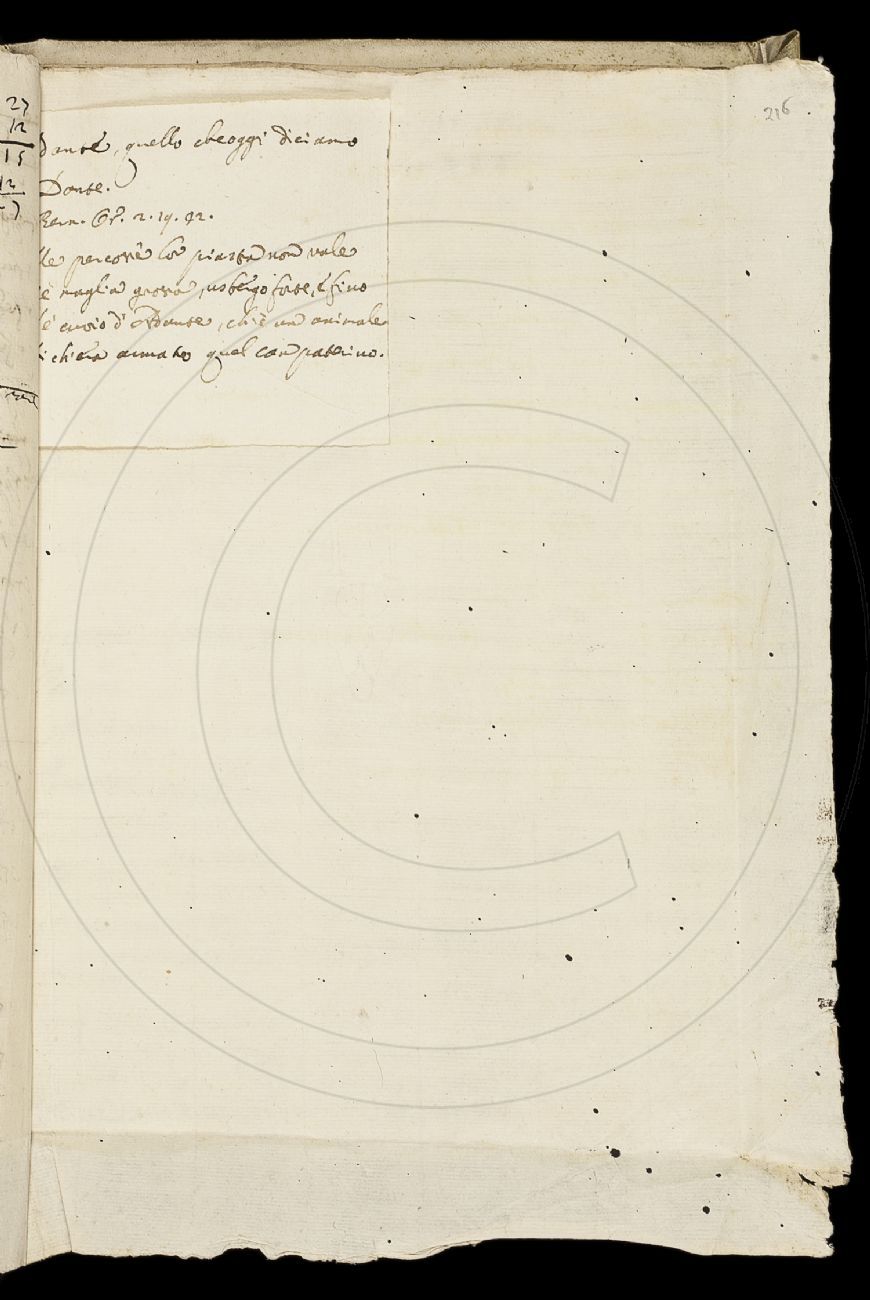 27
12
15
12
216
dante, quello che oggi diciamo
Dante.
Bern. Or. 2. 19. 42.
lle percove lor piastra non vale
è maglia grossa, usbergo forte, é fino
lé cuoio d' Ordante, ch'è un animale
i ch'era armato quel can paterino.